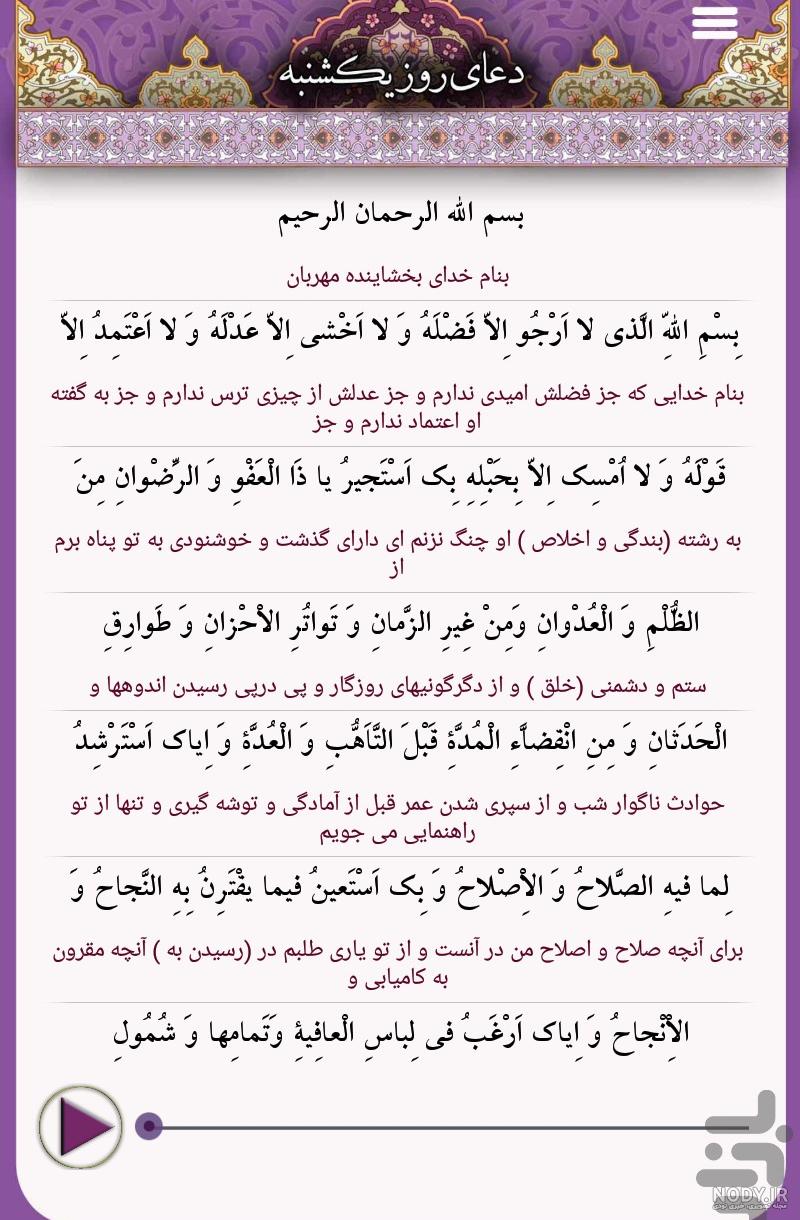 دعای روز یکشنبه
بسم الله الرحمان الرحیم
بنام خدای بخشاینده مهربان
بِسْمِ اللهِّ الَّذی لا اَرْجُو اِلاّ فَضْلَهُ وَ لا اَخْشی اِلاّ عَدْلَهُ وَ لا اَعْتَمِدُ اِلاّ
بنام خدایی که جز فضلش امیدی ندارم و جز عدلش از چیزی ترس ندارم و جز به گفته
او اعتماد ندارم و جز
قَوْلَهُ وَ لا اُمْسِک اِلاّ بِحَبْلِهِ بِک اَسْتَجیرُ یا ذَا الْعَفْوِ وَ الرِّضْوانِ مِنَ
به رشته (بندگی و اخلاص ) او چنگ نزنم ای دارای گذشت و خوشنودی به تو پناه برم
از
الظُّلْمِ وَ الْعُدْوانِ وَمِنْ غِیرِ الزَّمانِ وَ تَواتُرِ الاْحْزانِ وَ طَوارِقِ
ستم و دشمنی (خلق ) و از دگرگونیهای روزگار و پی درپی رسیدن اندوهها و
الْحَدَثانِ وَ مِنِ انْقِضاَّءِ الْمُدَّةِ قَبْلَ التَّاَهُّبِ وَ الْعُدَّةِ وَ اِیاک اَسْتَرْشِدُ
حوادث ناگوار شب و از سپری شدن عمر قبل از آمادگی و توشه گیری و تنها از تو
راهنمایی می جویم
لِما فیهِ الصَّلاحُ وَ الاْصْلاحُ وَ بِک اَسْتَعینُ فیما یقْتَرِنُ بِهِ النَّجاحُ وَ
برای آنچه صلاح و اصلاح من در آنست و از تو یاری طلبم در (رسیدن به ) آنچه مقرون
به کامیابی و
الاْنْجاحُ وَ اِیاک اَرْغَبُ فی لِباسِ الْعافِیةِ وَتَمامِها وَ شُمُولِ
NODY.IR